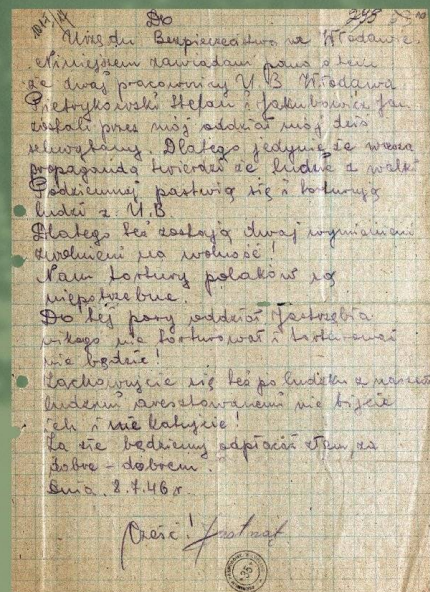 10 IX/47
Do
Urzędu Bezpieczeństwa we Włodawie.
Niniejszem zawiadam pana o tem
że dwaj pracownicy U B Włodawa
Pietrykowski Stefan i Jakubowicz Jan
zostali przez mój oddział mój dziś
schwytany. Dlatego jedynie że wasza
propagandą twierdzi że ludzie z walki
Podziemnej pastwią się i torturują
ludzi z U.B.
Dlatego też zostają dwaj wymienieni
zwolnieni na wolność!
Nam tortury polaków są
niepotrzebne.
Do tej pory oddział Jastrzębia
nikogo nie torturował i torturował
nie będzie!
Zachowujcie się też po ludzku z naszemi
ludźmi aresztowanemi nie bijcie
ich i nie katujcie!
Za złe będziemy odpłacać złem, za
dobre – dobrem.
Dnia 8.7.46 r.
Cześć!
35